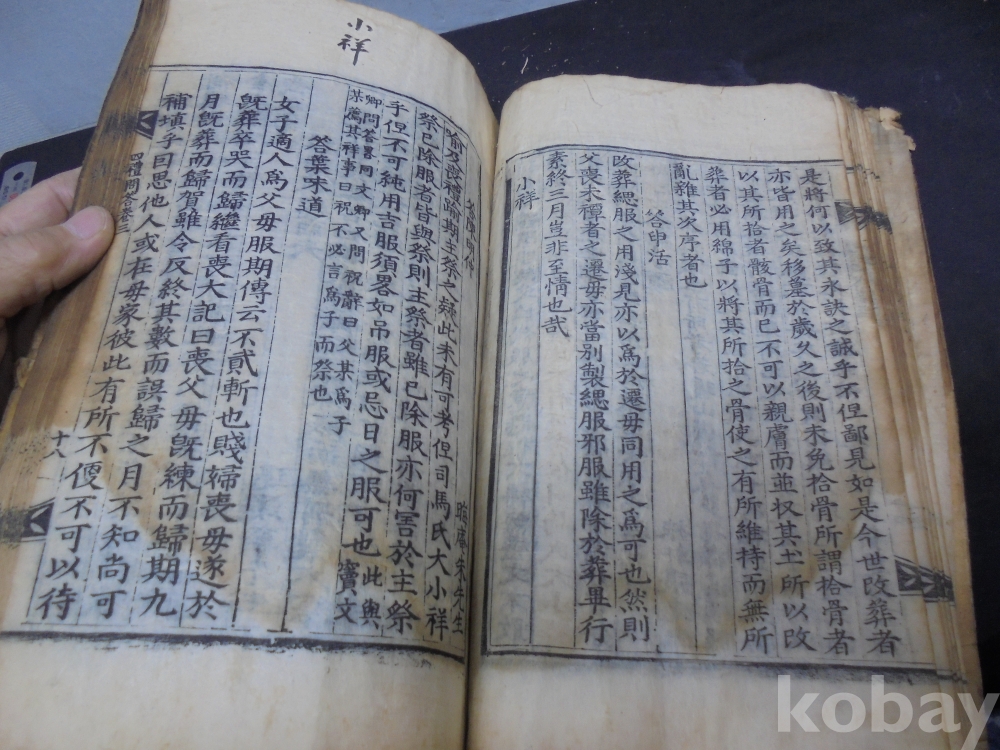 是將何以致其永訣之誠乎不但鄙見如是今世改葬者
亦皆用之矣移墓於歲久之後則未免拾骨所謂拾骨者
以其所拾者骸骨而已不可以親膚而並収其土所以改
葬者必用綿子以將其所拾之骨使之有所維持而無所
亂雜其次序者也
答申活
改葬緦服之用淺見亦以爲於遷毋同用之爲可也然則
父喪未禫者之遷毋亦當別製緦服邪服雖除於葬畢行
素終三月豈非至情也哉
小祥
小祥
晦庵朱先生
喻及喪禮踰期主祭之疑此未有可考但司馬氏大小祥
祭已除服者皆與祭則主祭者雖已除服亦何害於主祭
乎但不可純用吉服須畧如吊服或忌日之服可也 此與竇文
卿問答畧同文卿又問祝辭曰父某爲子
某薦其祥事曰祝不必言爲子而祭也
答葉味道
女子適人爲父毋服期傳云不貳斬也賤婦喪毋遂於
既葬卒哭而歸繼看喪大記曰喪父毋旣練而歸期九
月旣葬而歸賀雖令反終其數而誤歸之月不知尚可
補塡乎曰思他人或在毋家彼此有所不便不可以待
四禮問答卷三
十八
kobay